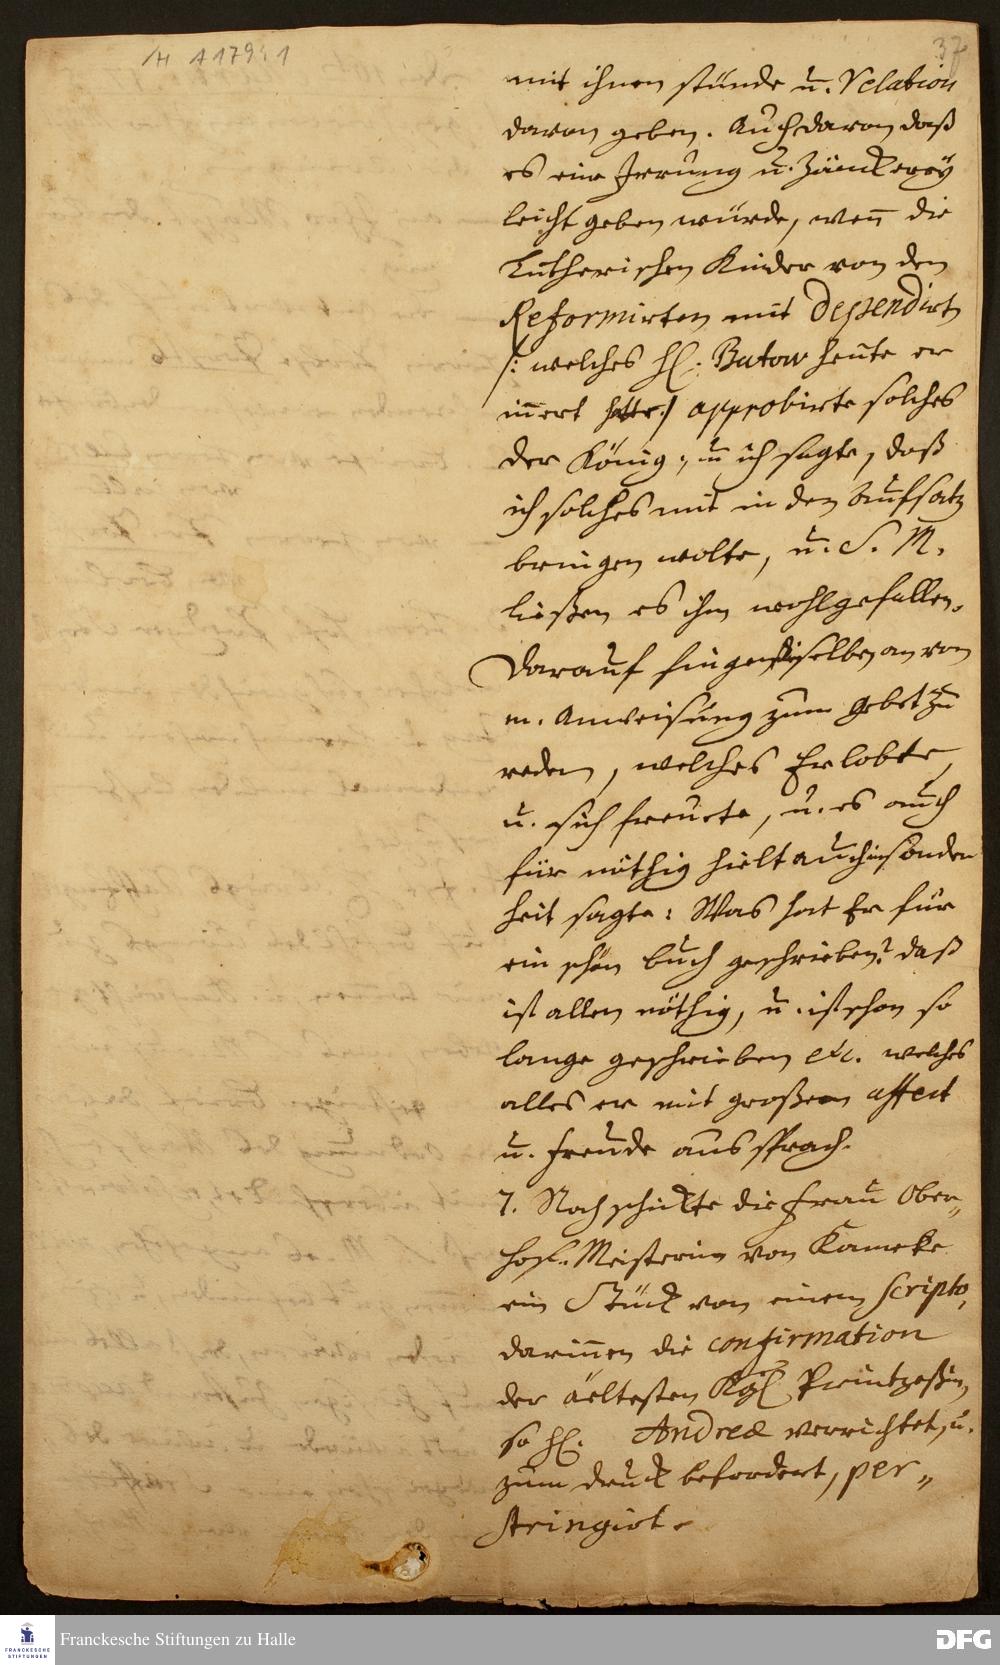 H A 179:1
37
mit ihnen stünde u. Relation
davon geben. Auch davon daß
es eine Irrung u. Zänckerey
leicht geben würde, wen̄ die
Lutherischen Kinder von den
Reformirten mit dependirt
/: welches H. Butow heute er
in̄ert hatte:/ approbirte solches
der König, u. ich sagte, daß
ich solches mit in den Aufsatz
bringen wolte, u. S. M.
ließen es ihm wohlgefallen.
Darauf fingen dieselben an von
m. Anweisung zum Gebet zu
reden, welches Er lobte,
u. sich freuete, u. es auch
für nöthig hielt auch insonder
heit sagte: Was hat Er für
ein schön buch geschrieben? daß
ist allen nöthig, u. ist schon so
lange geschrieben etc. welches
alles er mit großem affect
u. freude aussprach.
7. Noch schickte die Frau Ober-
hoff-Meisterin von Kameke
ein Stück von einem scripto,
darin̄en die confirmation
der äeltesten Kgl Printzeßin,
so H. Andreæ verrichtet, u.
zum druck befordert, per-
stringirt.
Franckesche Stiftungen zu Halle
FRANCKESCHE
STIFTUNGEN
DFG